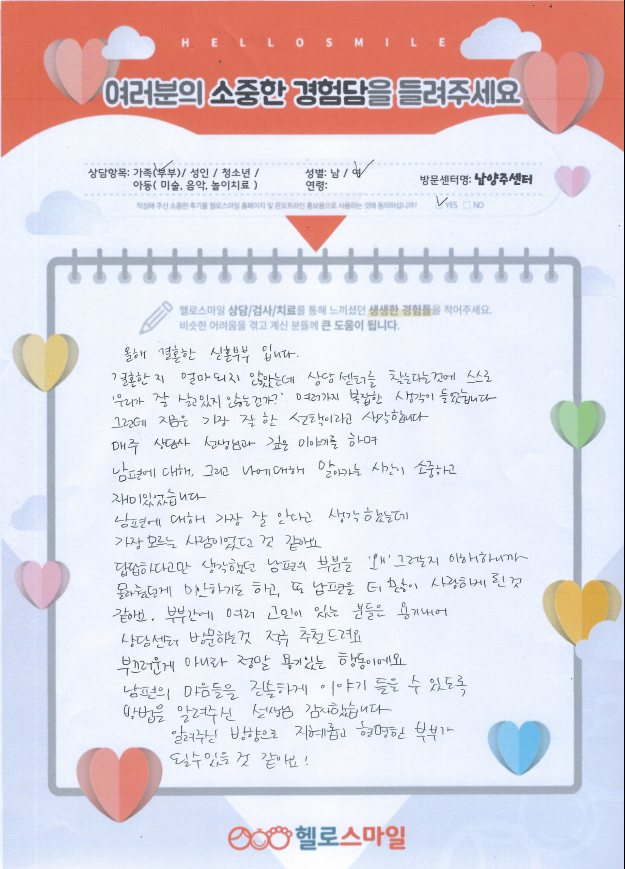 HELLOSMILE
여러분의 소중한 경험담을 들려주세요
상담항목: 가족(부부)/ 성인 / 청소년 /
아동( 미술, 음악, 놀이치료 )
성별: 남 / 여
연령:
방문센터명: 남양주센터
작성해 주신 소중한 후기를 헬로스마일 홈페이지 및 온오프라인 홍보용으로 사용하는 것에 동의하십니까? YES NO
헬로스마일 상담/검사/치료를 통해 느끼셨던 생생한 경험들을 적어주세요.
비슷한 어려움을 겪고 계신 분들께 큰 도움이 됩니다.
올해 결혼한 신혼부부 입니다.
결혼한지 얼마되지 않았는데 상담센터를 찾는다는것에 스스로
'우리가 잘 살고있지 않는건가?' 여러가지 복잡한 생각이 들었습니다
그런데 지금은 가장 잘 한 선택이라고 생각합니다
매주 상담사 선생님과 깊은 이야기를 하며
남편에 대해, 그리고 나에대해 알아가는 시간이 소중하고
재미있었습니다
남편에 대해 가장 잘 안다고 생각했는데
가장 모르는 사람이었던 것 같아요
답답하다고만 생각했던 남편의 부분을 '왜' 그런지 이해하니까
몰라줬던게 미안하기도 하고, 또 남편을 더 많이 사랑하게 된 것
같아요. 부부간에 여러 고민이 있는 분들은 용기내어
상담센터 방문하는것 적극 추천드려요
부끄러운게 아니라 정말 용기있는 행동이에요
남편의 마음들을 진솔하게 이야기 들을 수 있도록
방법을 알려주신 선생님 감사했습니다
알려주신 방향으로 지혜롭고 현명한 부부가
될수있을 것 같아요!
헬로스마일